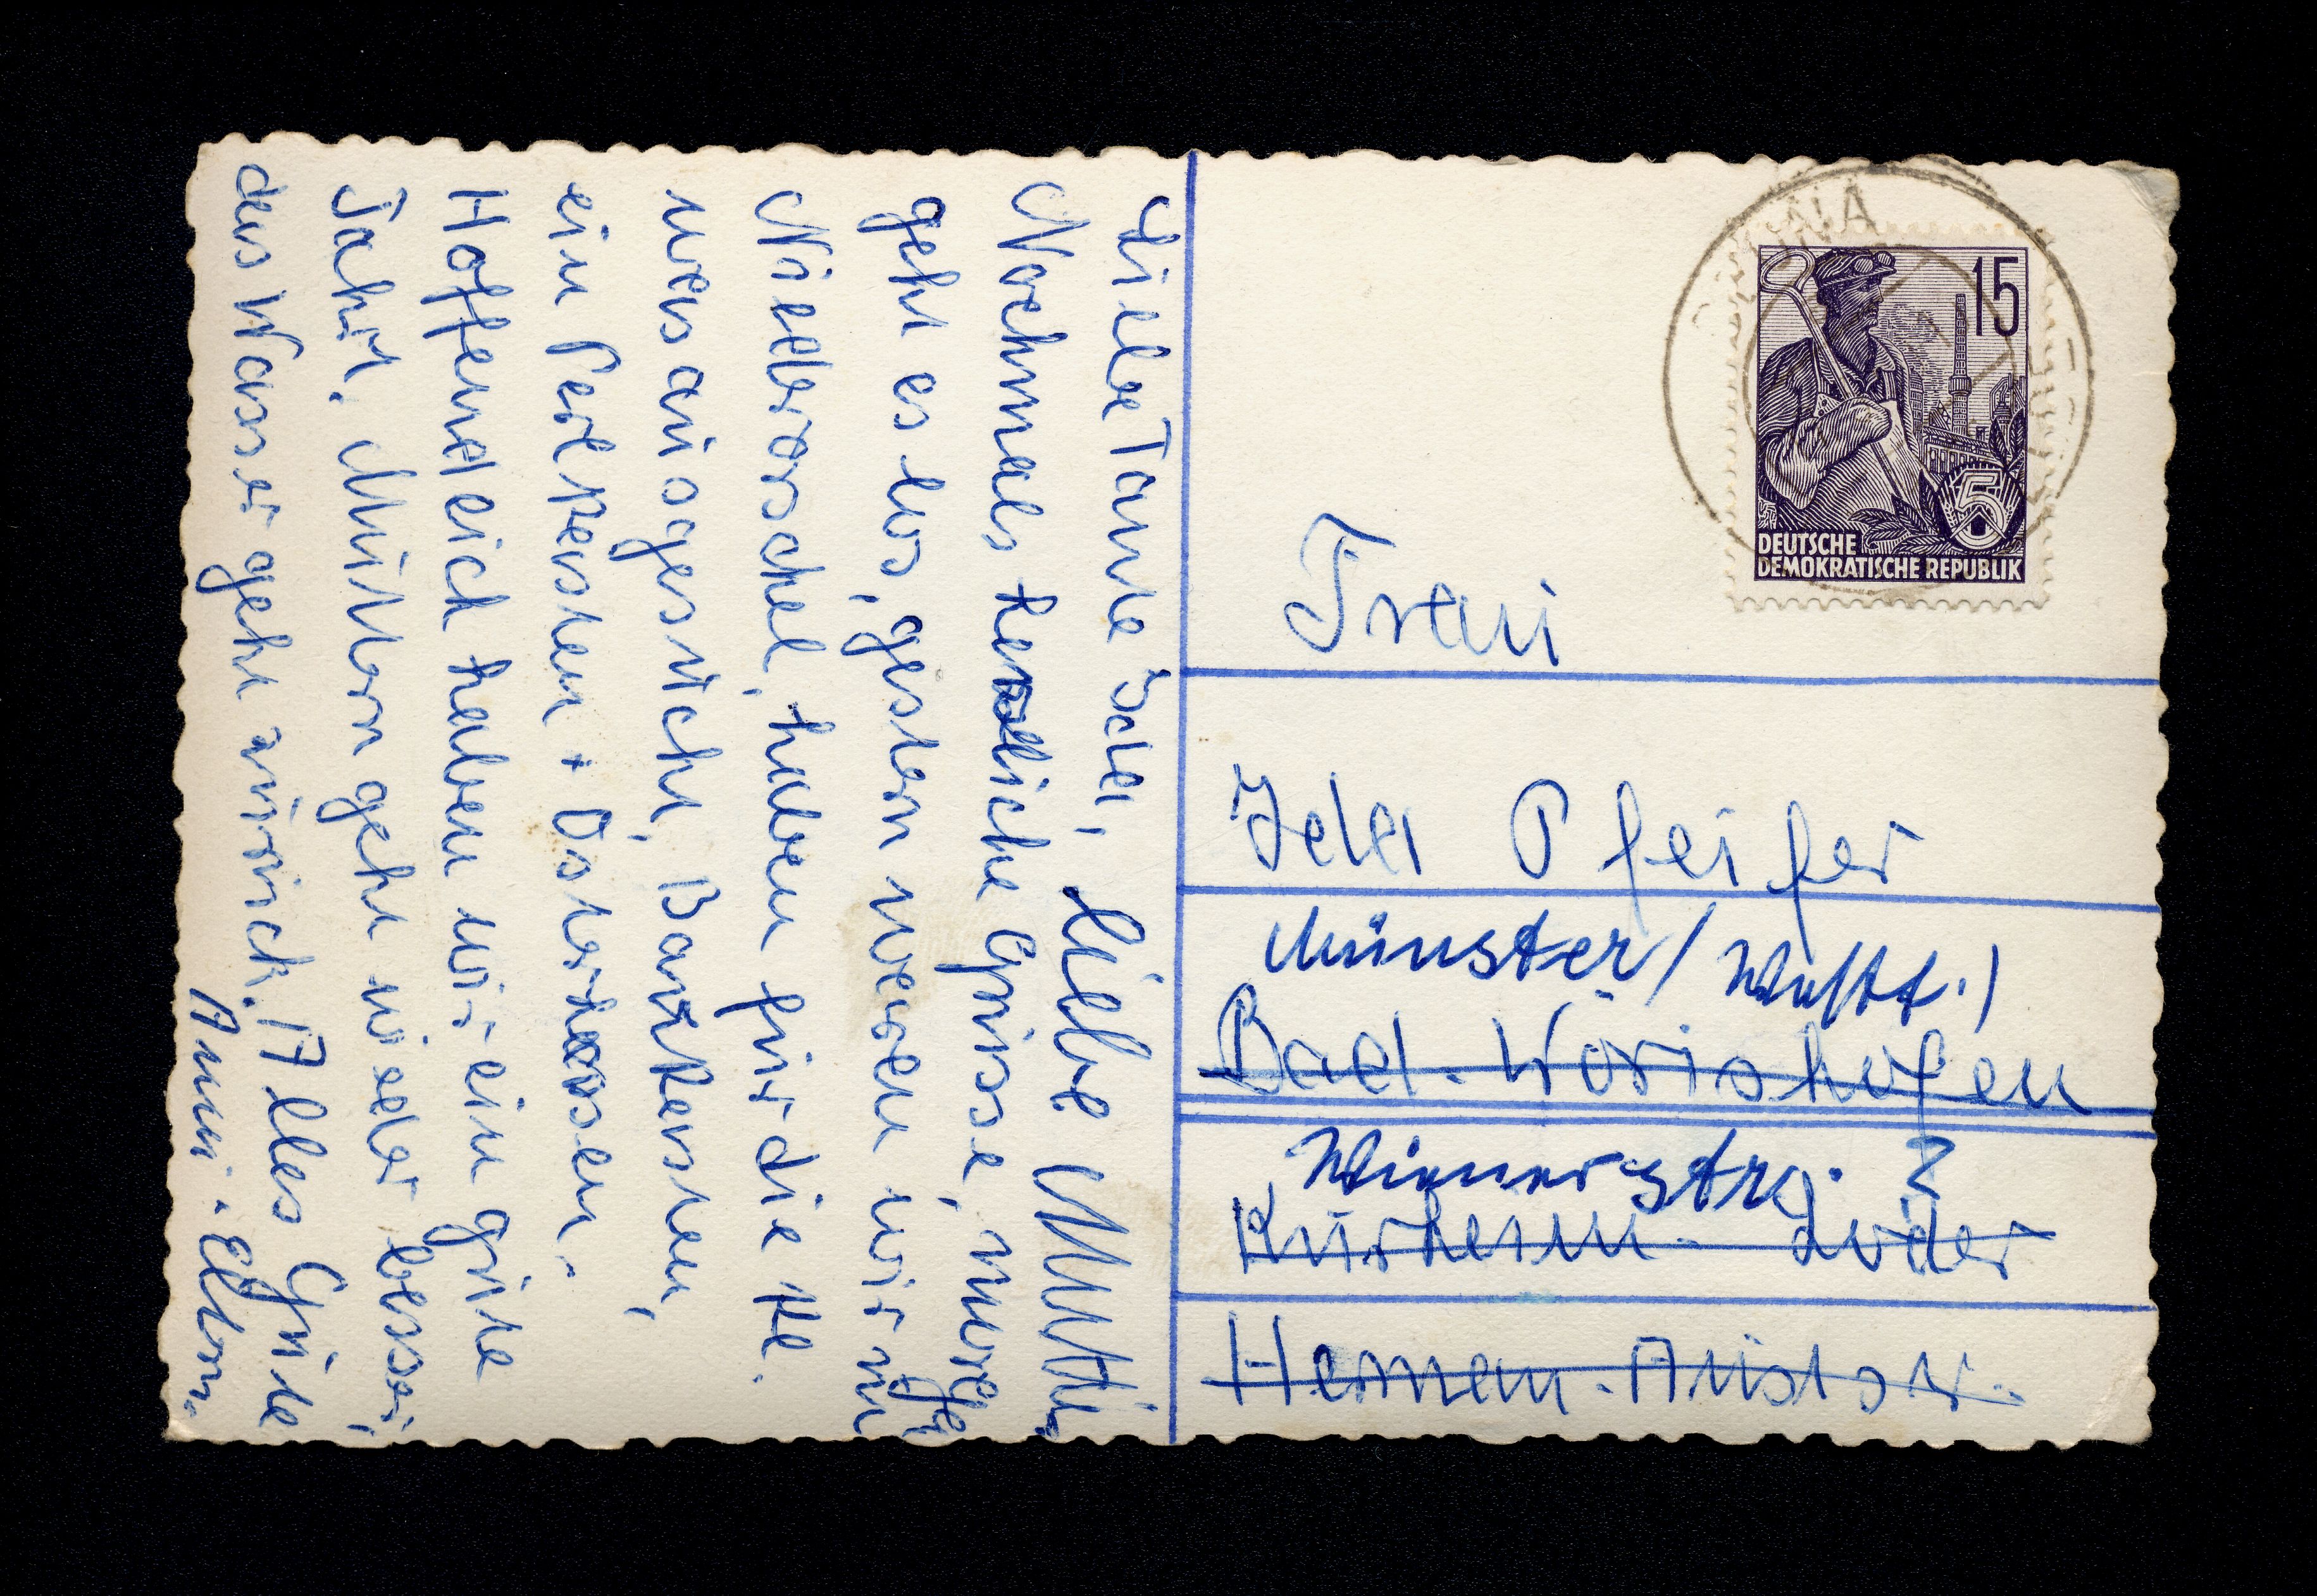 Liebe Tante Ida, Liebe Mutti
Nochmals herzliche Grüsse, morge
geht es los, gestern waren wir in
Niederorschel, haben für die Kl.
was ausgesucht, Bastkasten,
ein Perlkasten + Osterhasen.
Hoffendlich haben wir ein gute
Fahrt. Muttern geht wieder besser,
das Wasser geht zurück. Alles Gute
Anni.
DEUTSCHE
DEMOKRATISCHE REPUBLIK
15
5
Frau
Ida Pfeifer
Münster/ Westf.)
Bad. Wörishofen
Wienerstrg. 2
Kurheim